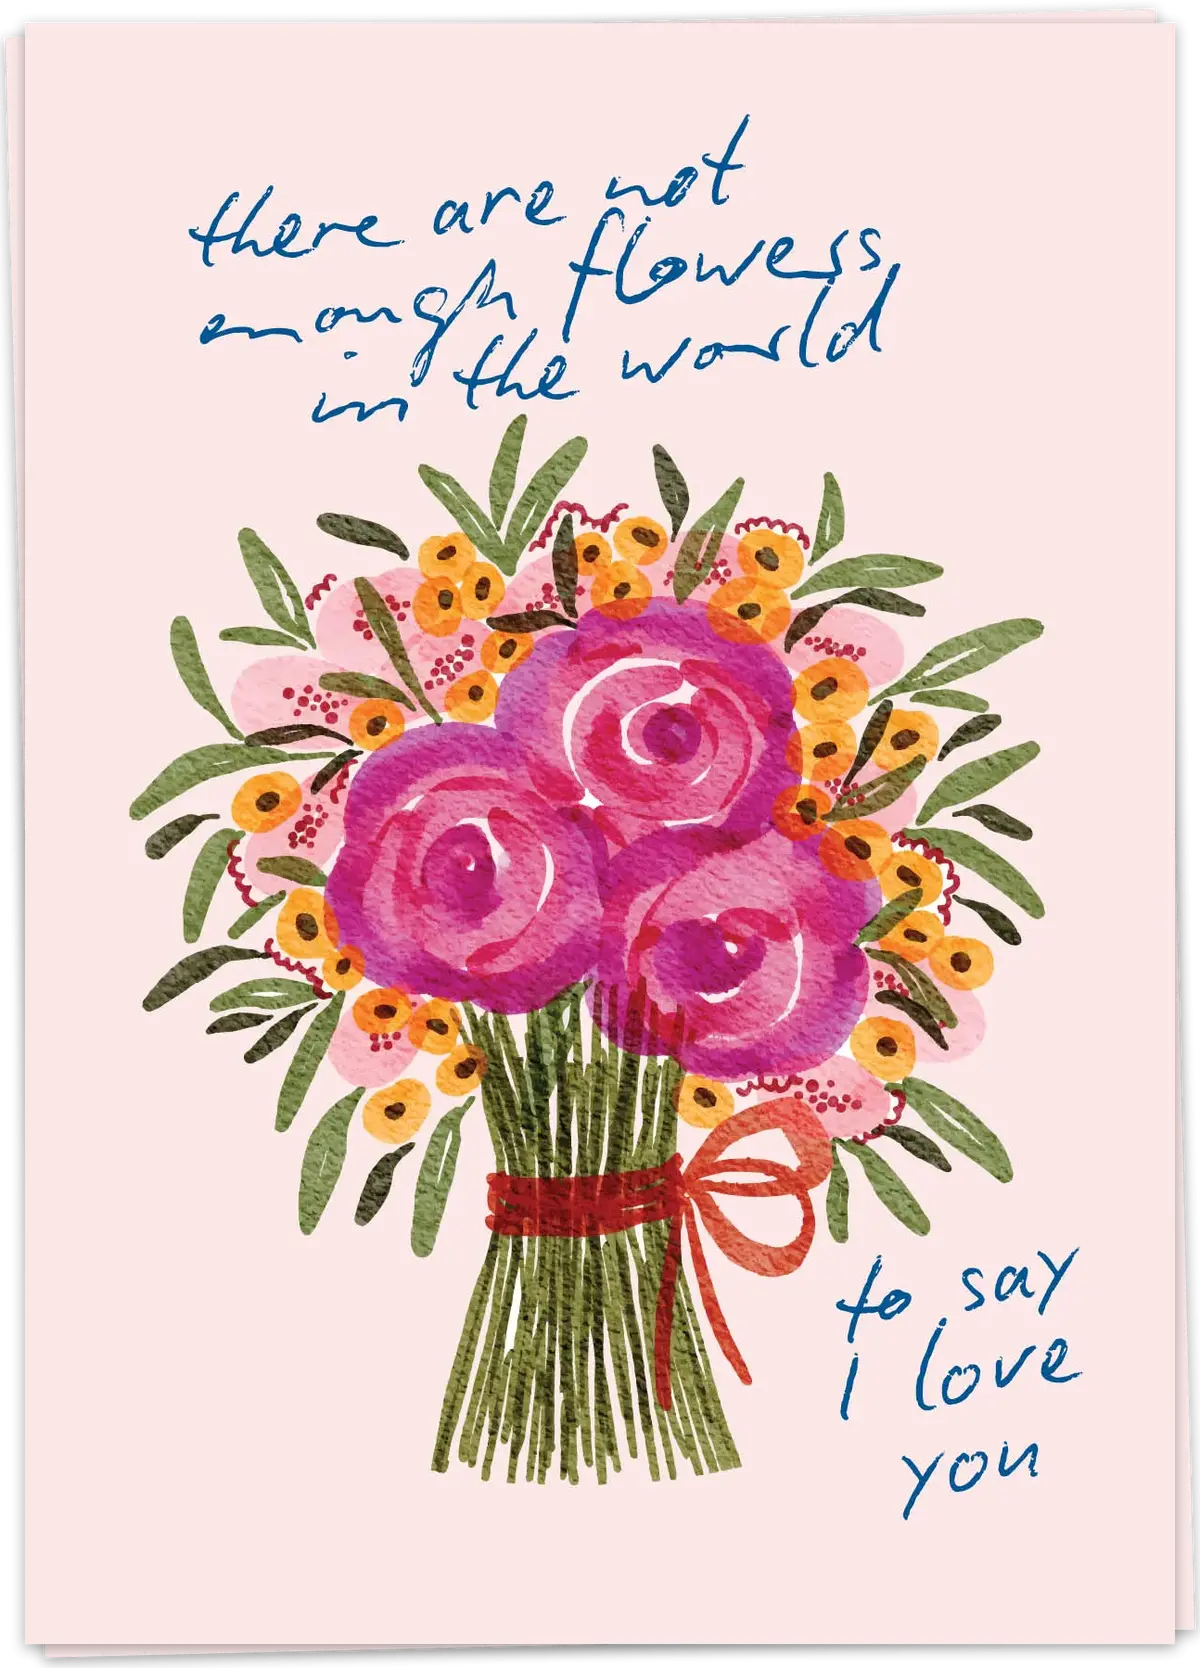 there are not
enough flowers
in the world
to say
I love
you